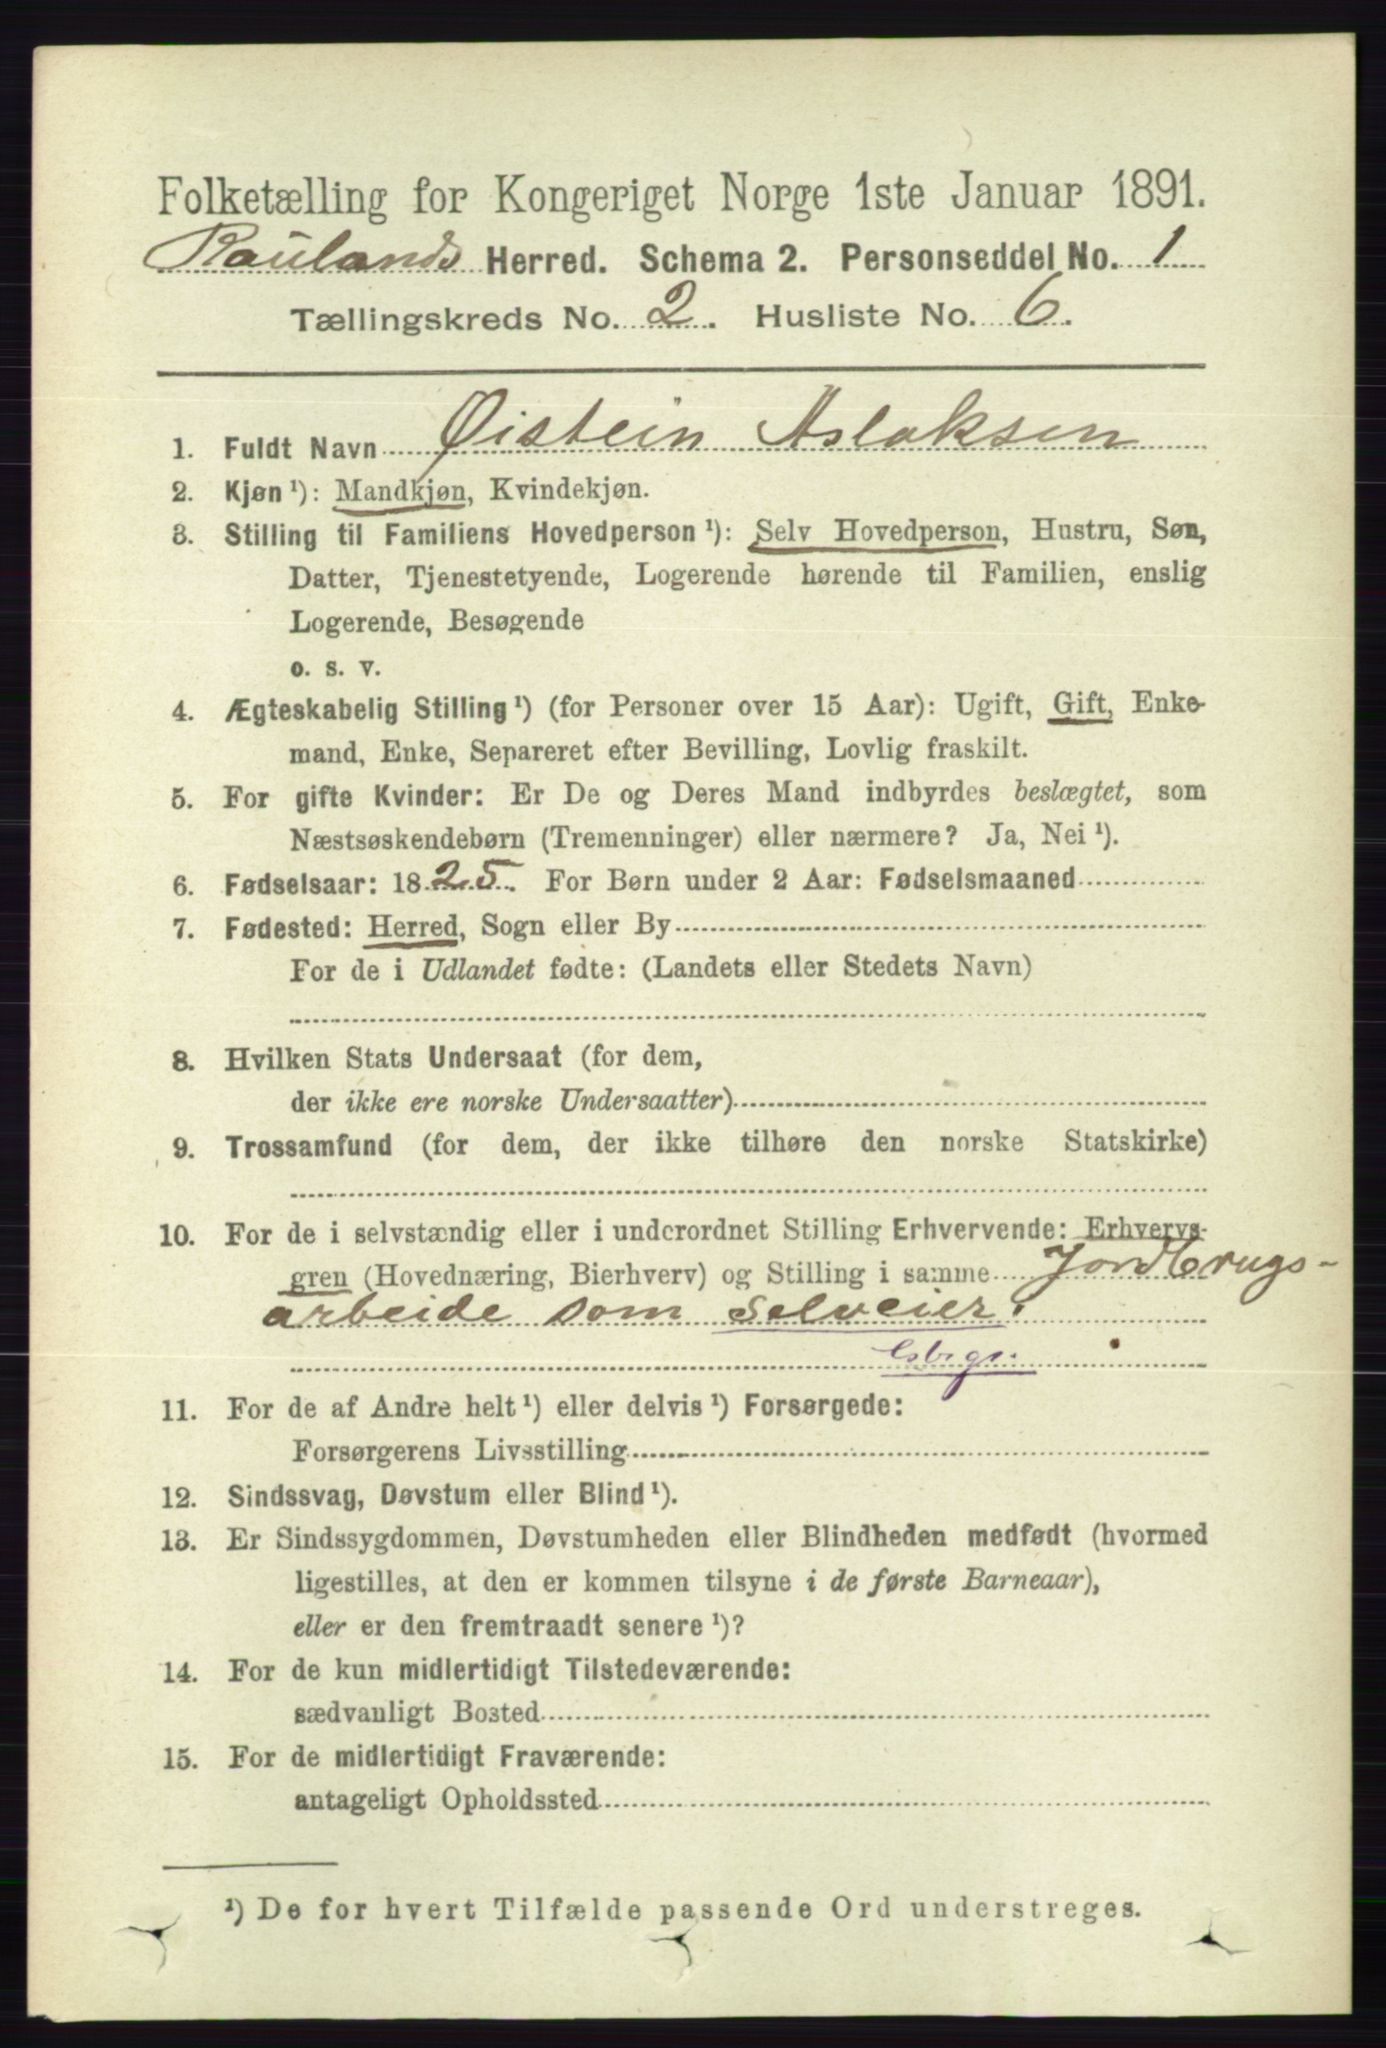 Folketælling for Kongeriget Norge 1ste Januar 1891.
Raulands Herred. Schema 2. Personseddel No. 1
Tællingskreds No. 2. Husliste No. 6.
1. Fuldt Navn Øistein Aslaksen
2. Kjøn ¹): Mandkjøn, Kvindekjøn.
3. Stilling til Familiens Hovedperson ¹): Selv Hovedperson, Hustru, Søn,
Datter, Tjenestetyende, Logerende hørende til Familien, enslig
Logerende, Besøgende
o. s. v.
4. Ægteskabelig Stilling ¹) (for Personer over 15 Aar): Ugift, Gift, Enke-
mand, Enke, Separeret efter Bevilling, Lovlig fraskilt.
5. For gifte Kvinder: Er De og Deres Mand indbyrdes beslægtet, som
Næstsøskendebørn (Tremenninger) eller nærmere? Ja, Nei ¹).
6. Fødselsaar: 1825. For Børn under 2 Aar: Fødselsmaaned
7. Fødested: Herred, Sogn eller By
For de i Udlandet fødte: (Landets eller Stedets Navn)
8. Hvilken Stats Undersaat (for dem,
der ikke ere norske Undersaatter)
9. Trossamfund (for dem, der ikke tilhøre den norske Statskirke)
10. For de i selvstændig eller i underordnet Stilling Erhvervende: Erhvervs-
gren (Hovednæring, Bierhverv) og Stilling i samme Jordbrugs-
arbeide som Selveier.
11. For de af Andre helt ¹) eller delvis ¹) Forsørgede:
Forsørgerens Livsstilling
12. Sindssvag, Døvstum eller Blind ¹).
13. Er Sindssygdommen, Døvstumheden eller Blindheden medfødt (hvormed
ligestilles, at den er kommen tilsyne i de første Barneaar),
eller er den fremtraadt senere ¹)?
14. For de kun midlertidigt Tilstedeværende:
sædvanligt Bosted
15. For de midlertidigt Fraværende:
antageligt Opholdssted
¹) De for hvert Tilfælde passende Ord understreges.